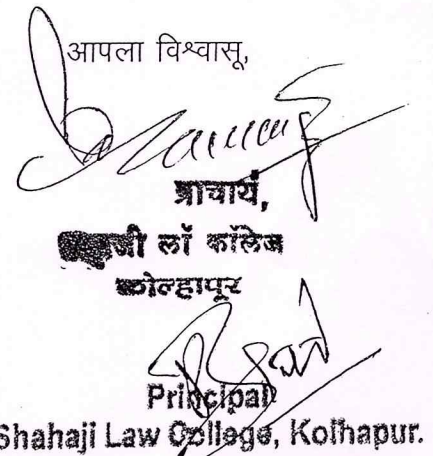 आपला विश्वासू,
प्राचार्य,
लॉ कॉलेज
कोल्हापूर
Principal
Shahaji Law College, Kolhapur.